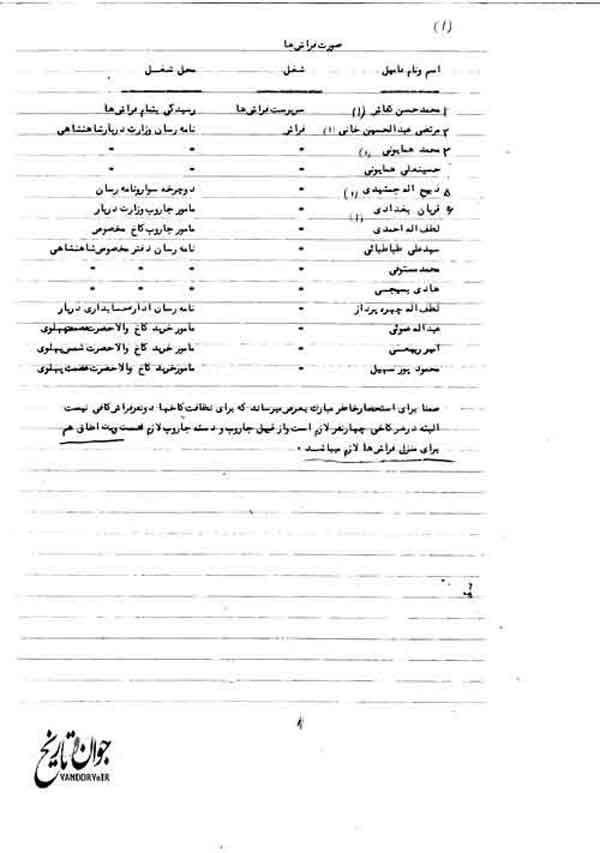 (۱)
صورت فراش‌ها
اسم و نام فامیل شغل محل شغل
۱ محمد حسن نقاش (۱) سرپرست فراش‌ها رسیدگی بتمام فراش‌ها
۲ مرتضی عبدالحسین خانی (۱) فراش نامه رسان وزارت دربار شاهنشاهی
۳ محمد همایونی (۱) " " " "
حسینعلی همایونی " " " "
۵ ذبیح اله جمشیدی (۱) " دوچرخه سوار و نامه رسان
۶ قربان بغدادی (۱) " مامور جاروب وزارت دربار
لطف اله احمدی " مامور جاروب کاخ مخصوص
سید علی طباطبائی " نامه رسان دفتر مخصوص شاهنشاهی
محمد مستوفی " " " "
هادی بسیجی " " " "
لطف اله چهره پرداز " نامه رسان اداره حسابداری دربار
عبداله صوفی " مامور خرید کاخ والاحضرت پهلوی
امیر ربیعی " مامور خرید کاخ والاحضرت شمس پهلوی
محمود پور سهیل " مامور خرید کاخ والاحضرت عصمت پهلوی
ضمنا برای استحضار خاطر مبارک بعرض میرساند که برای نظافت کاخها دو نفر فراش کافی نیست
البته در هر کاخی چهار نفر لازم است و از قبیل جاروب و دسته جاروب لازم است و یک اطاقی هم
برای منزل فراش‌ها لازم میباشد .
جوان و تاریخ
YANDORY.IR